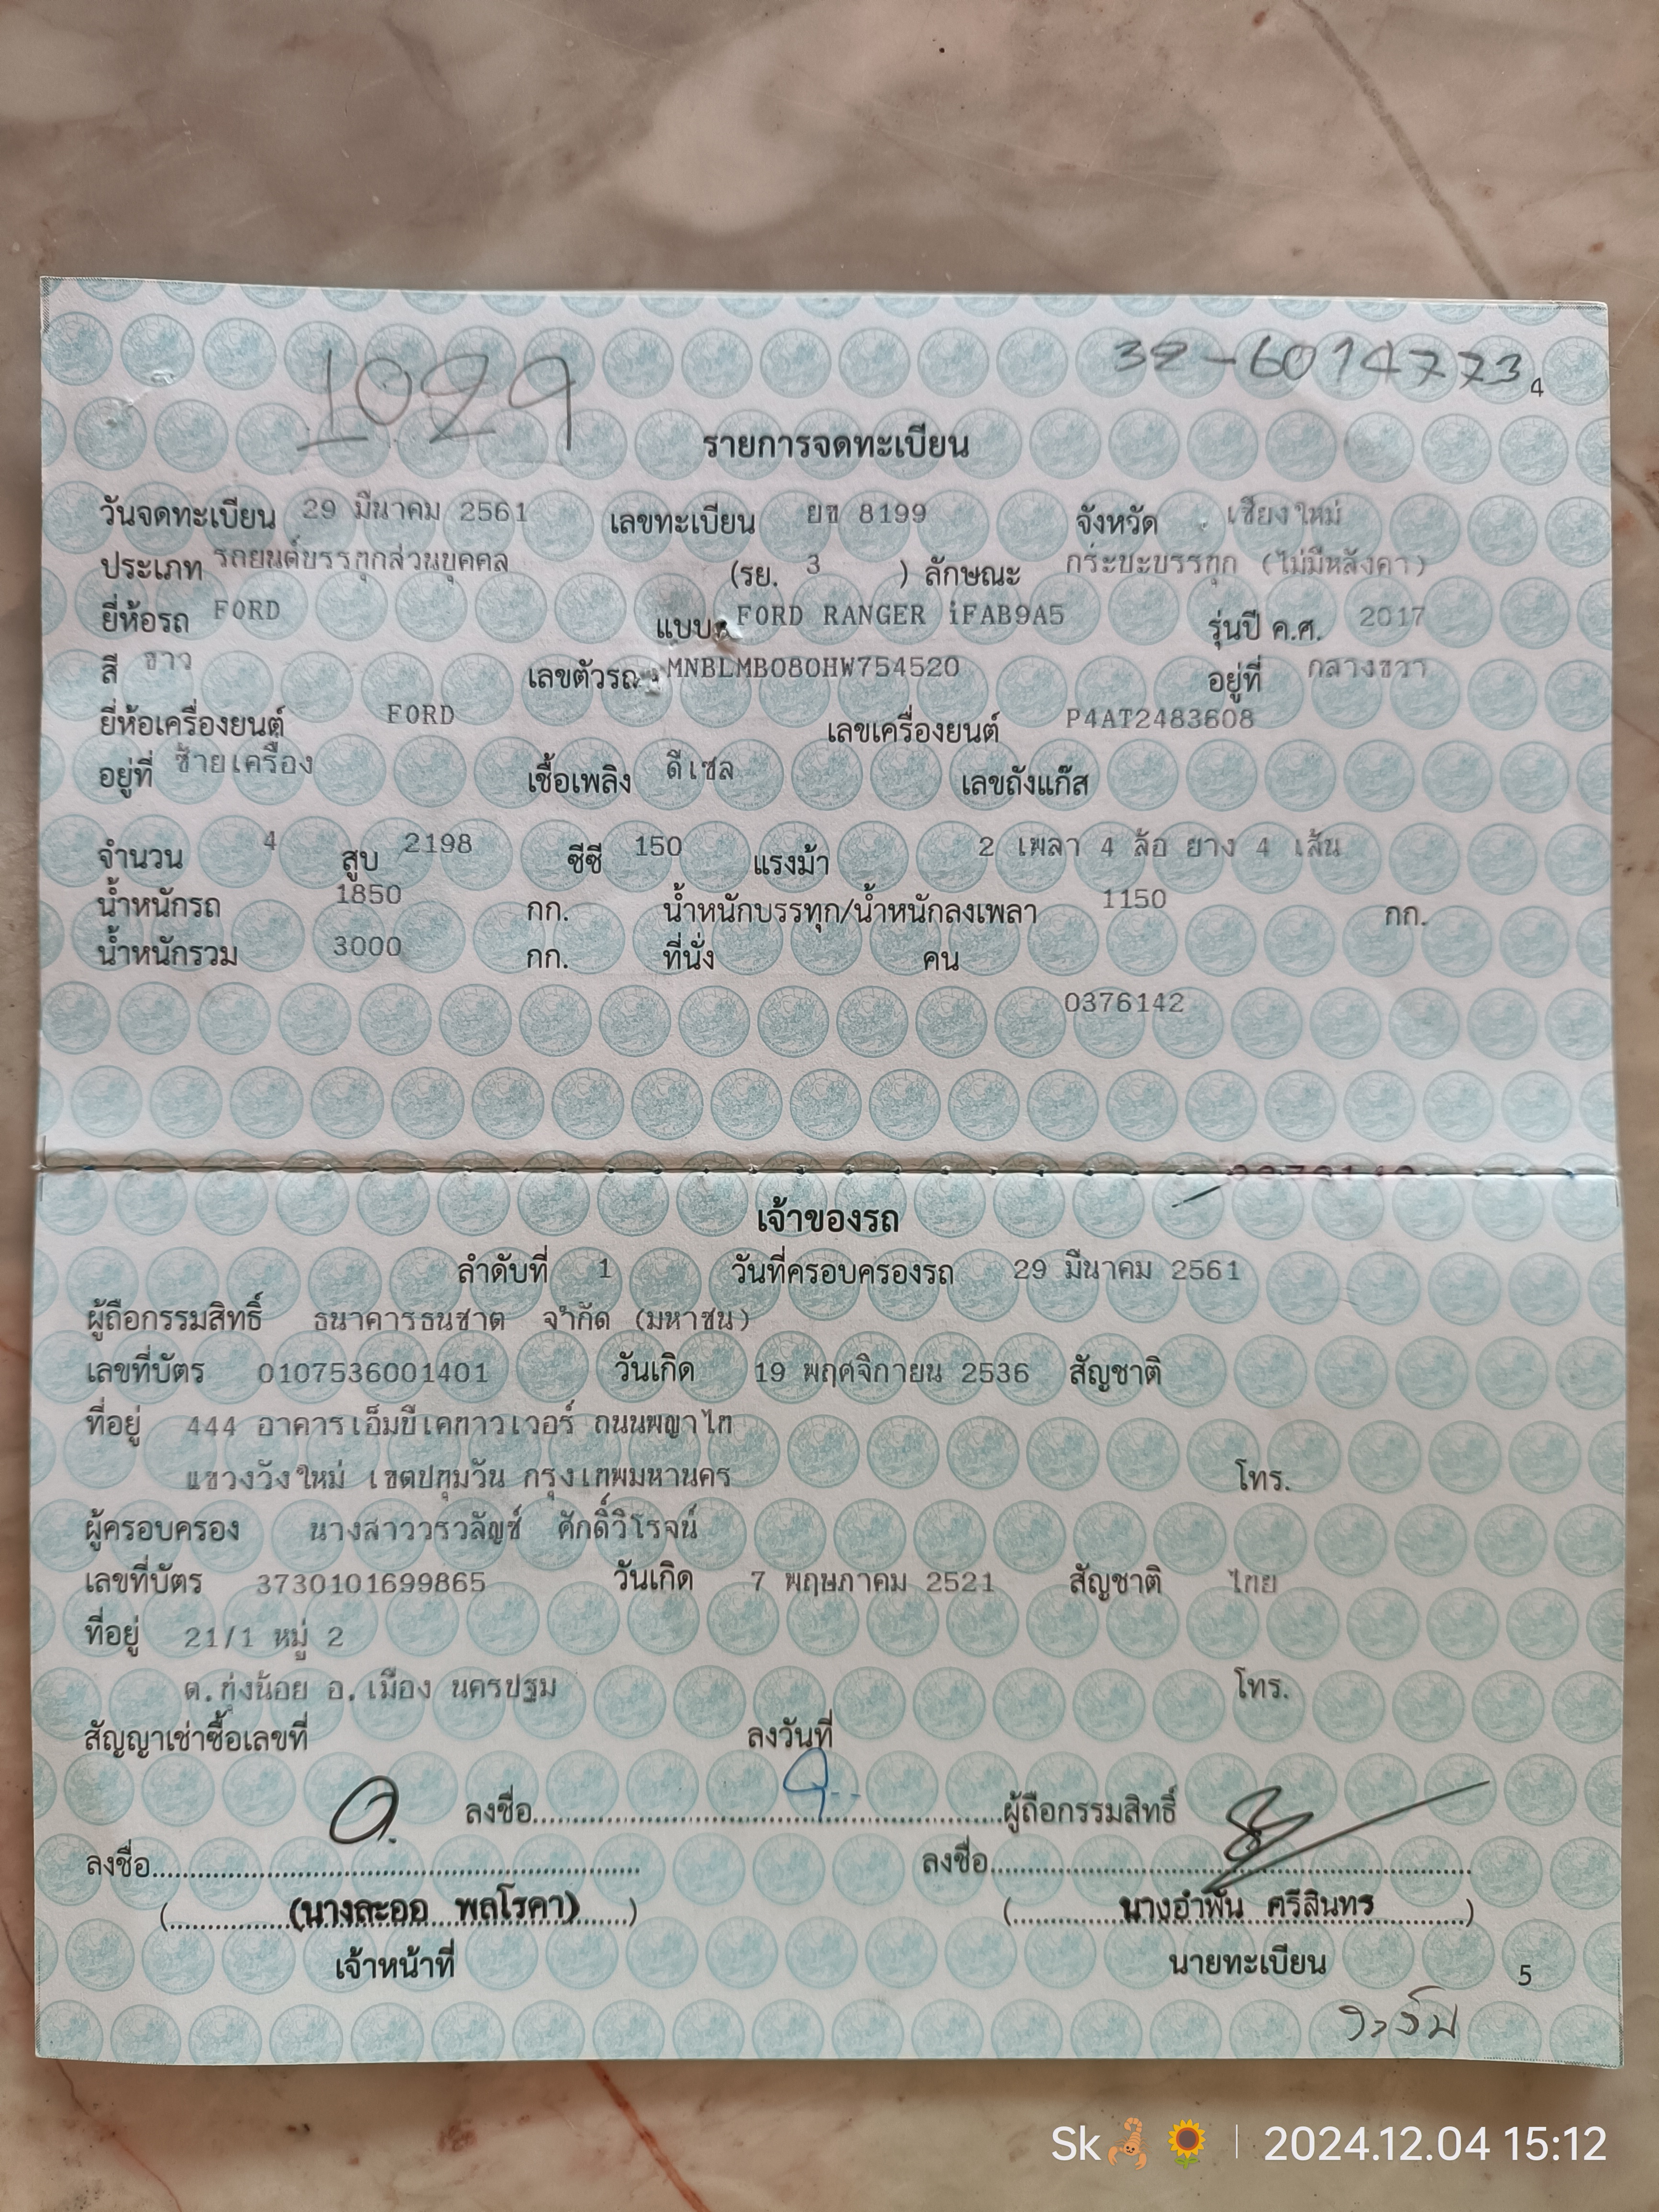 1029
32-6014773
4
รายการจดทะเบียน
วันจดทะเบียน 29 มีนาคม 2561 เลขทะเบียน ยข 8199 จังหวัด เชียงใหม่
ประเภท รถยนต์บรรทุกส่วนบุคคล (รย. 3 ) ลักษณะ กระบะบรรทุก (ไม่มีหลังคา)
ยี่ห้อรถ FORD แบบ FORD RANGER iFAB9A5 รุ่นปี ค.ศ. 2017
สี ขาว เลขตัวรถ MNBLMB080HW754520 อยู่ที่ กลางขวา
ยี่ห้อเครื่องยนต์ FORD เลขเครื่องยนต์ P4AT2483608
อยู่ที่ ซ้ายเครื่อง เชื้อเพลิง ดีเซล เลขถังแก๊ส
จำนวน 4 สูบ 2198 ซีซี 150 แรงม้า 2 เพลา 4 ล้อ ยาง 4 เส้น
น้ำหนักรถ 1850 กก. น้ำหนักบรรทุก/น้ำหนักลงเพลา 1150 กก.
น้ำหนักรวม 3000 กก. ที่นั่ง คน
0376142
เจ้าของรถ
ลำดับที่ 1 วันที่ครอบครองรถ 29 มีนาคม 2561
ผู้ถือกรรมสิทธิ์ ธนาคารธนชาต จำกัด (มหาชน)
เลขที่บัตร 0107536001401 วันเกิด 19 พฤศจิกายน 2536 สัญชาติ
ที่อยู่ 444 อาคารเอ็มบีเคทาวเวอร์ ถนนพญาไท
แขวงวังใหม่ เขตปทุมวัน กรุงเทพมหานคร โทร.
ผู้ครอบครอง นางสาววรวลัญช์ ศักดิ์วิโรจน์
เลขที่บัตร 3730101699865 วันเกิด 7 พฤษภาคม 2521 สัญชาติ ไทย
ที่อยู่ 21/1 หมู่ 2
ต.ทุ่งน้อย อ.เมือง นครปฐม โทร.
สัญญาเช่าซื้อเลขที่ ลงวันที่
ลงชื่อ ผู้ถือกรรมสิทธิ์
ลงชื่อ ลงชื่อ
(นางละออ พลโรคา) (นางอำพัน ศรีสินทร)
เจ้าหน้าที่ นายทะเบียน
5
Sk🦂🌻 | 2024.12.04 15:12